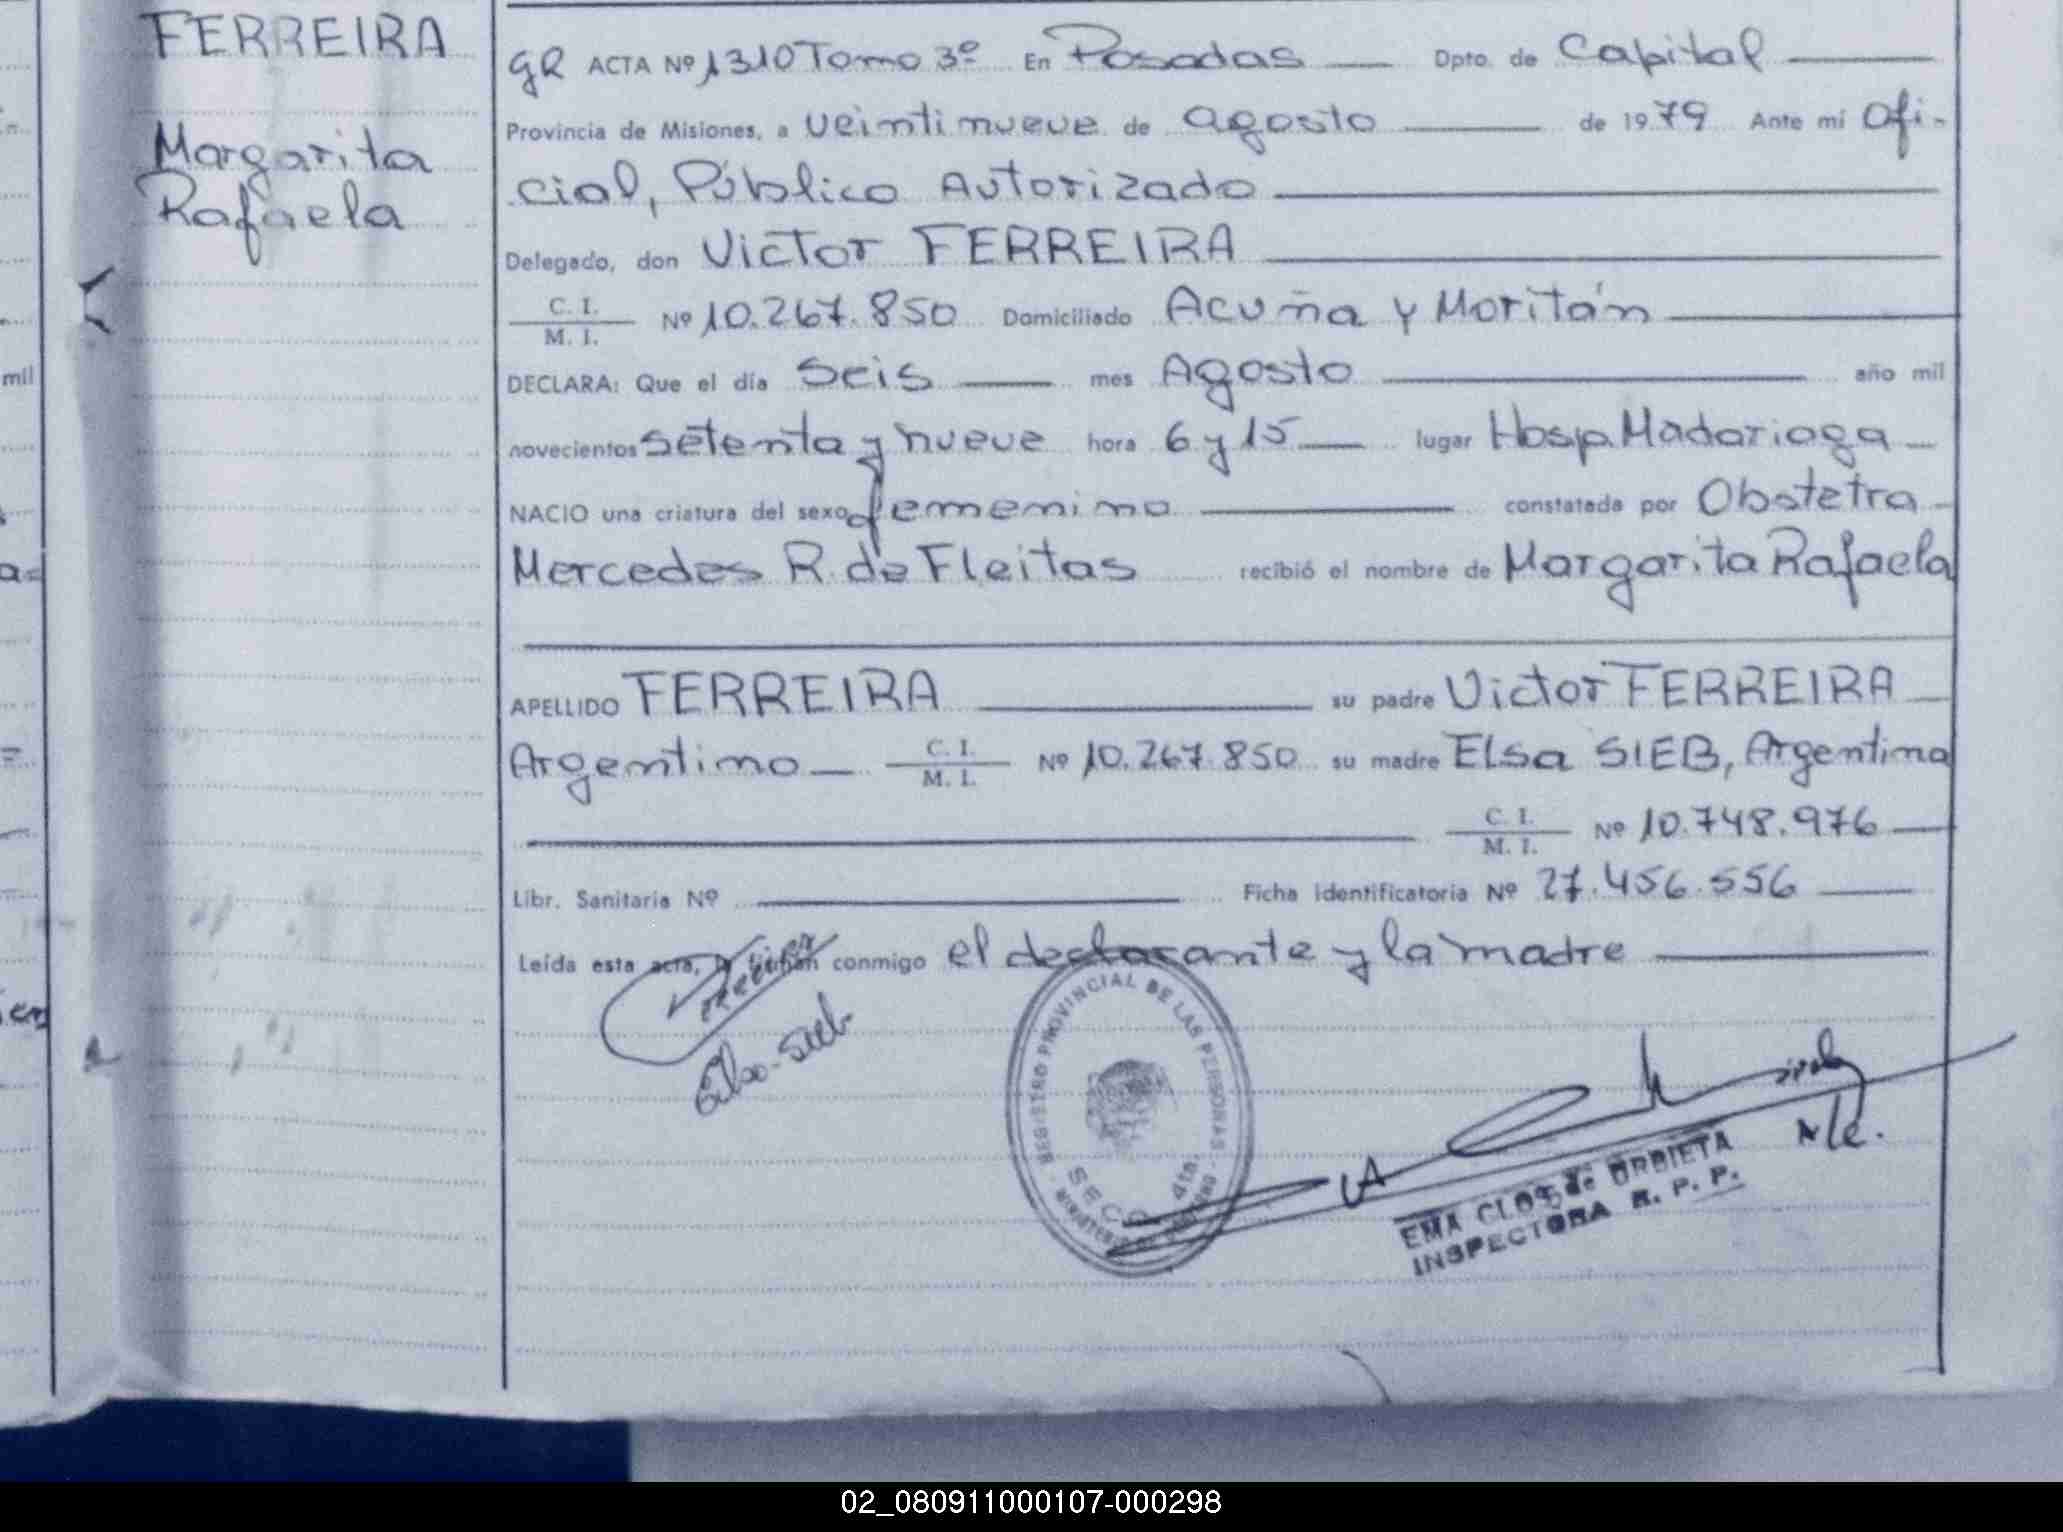 FERREIRA
Margarita
Rafaela
GR ACTA Nº 1310 Tomo 3º En Posadas Dpto. de Capital
Provincia de Misiones, a veintinueve de agosto de 1979 Ante mí Ofi-
cial, Público Autorizado
Delegado, don Victor FERREIRA
C. I.
M. I.
Nº 10.267.850 Domiciliado Acuña y Moritán
DECLARA: Que el día Seis mes Agosto año mil
novecientos setenta y nueve hora 6 y 15 lugar Hosp. Madariaga
NACIO una criatura del sexo femenino constatada por Obstetra
Mercedes R. de Fleitas recibió el nombre de Margarita Rafaela
APELLIDO FERREIRA su padre Victor FERREIRA
Argentino C. I. M. I. Nº 10.267.850 su madre Elsa SIEB, Argentina
C. I. M. I. Nº 10.748.976
Libr. Sanitaria Nº Ficha Identificatoria Nº 27.456.556
Leída esta acta, la firman conmigo el declarante y la madre
Elsa Sieb
REGISTRO PROVINCIAL DE LAS PERSONAS
SECC. 4ta.
EMA CLOSS de URBIETA
INSPECTORA R. P. P.
mil
02_080911000107-000298